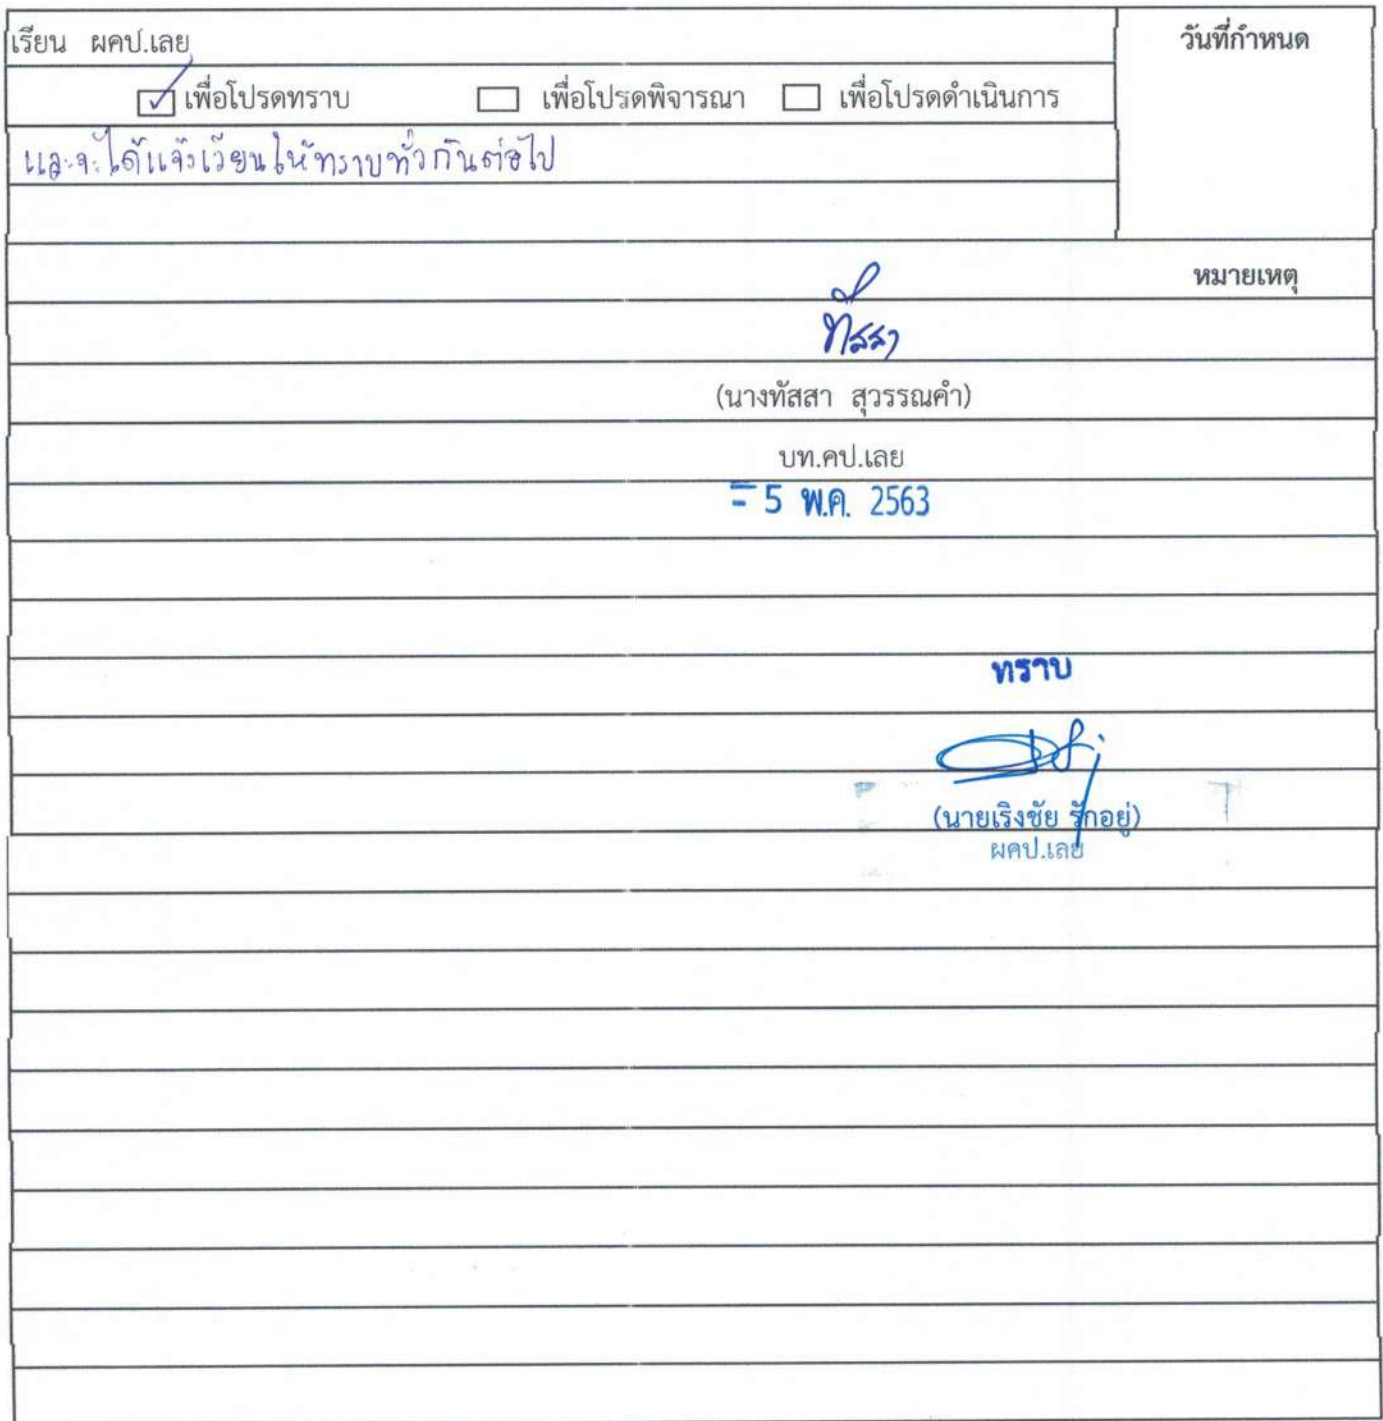 เรียน ผคป.เลย
วันที่กำหนด
เพื่อโปรดทราบ เพื่อโปรดพิจารณา เพื่อโปรดดำเนินการ
และจะได้แจ้งเวียนให้ทราบทั่วกันต่อไป
หมายเหตุ
ทัสสา
(นางทัสสา สุวรรณคำ)
บท.คป.เลย
- 5 พ.ค. 2563
ทราบ
(นายเริงชัย รักอยู่)
ผคป.เลย